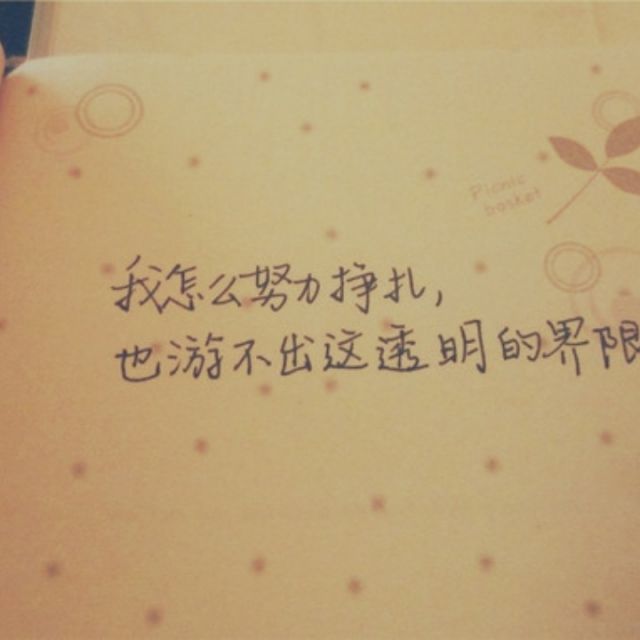 Picnic
basket
我怎么努力挣扎,
也游不出这透明的界限